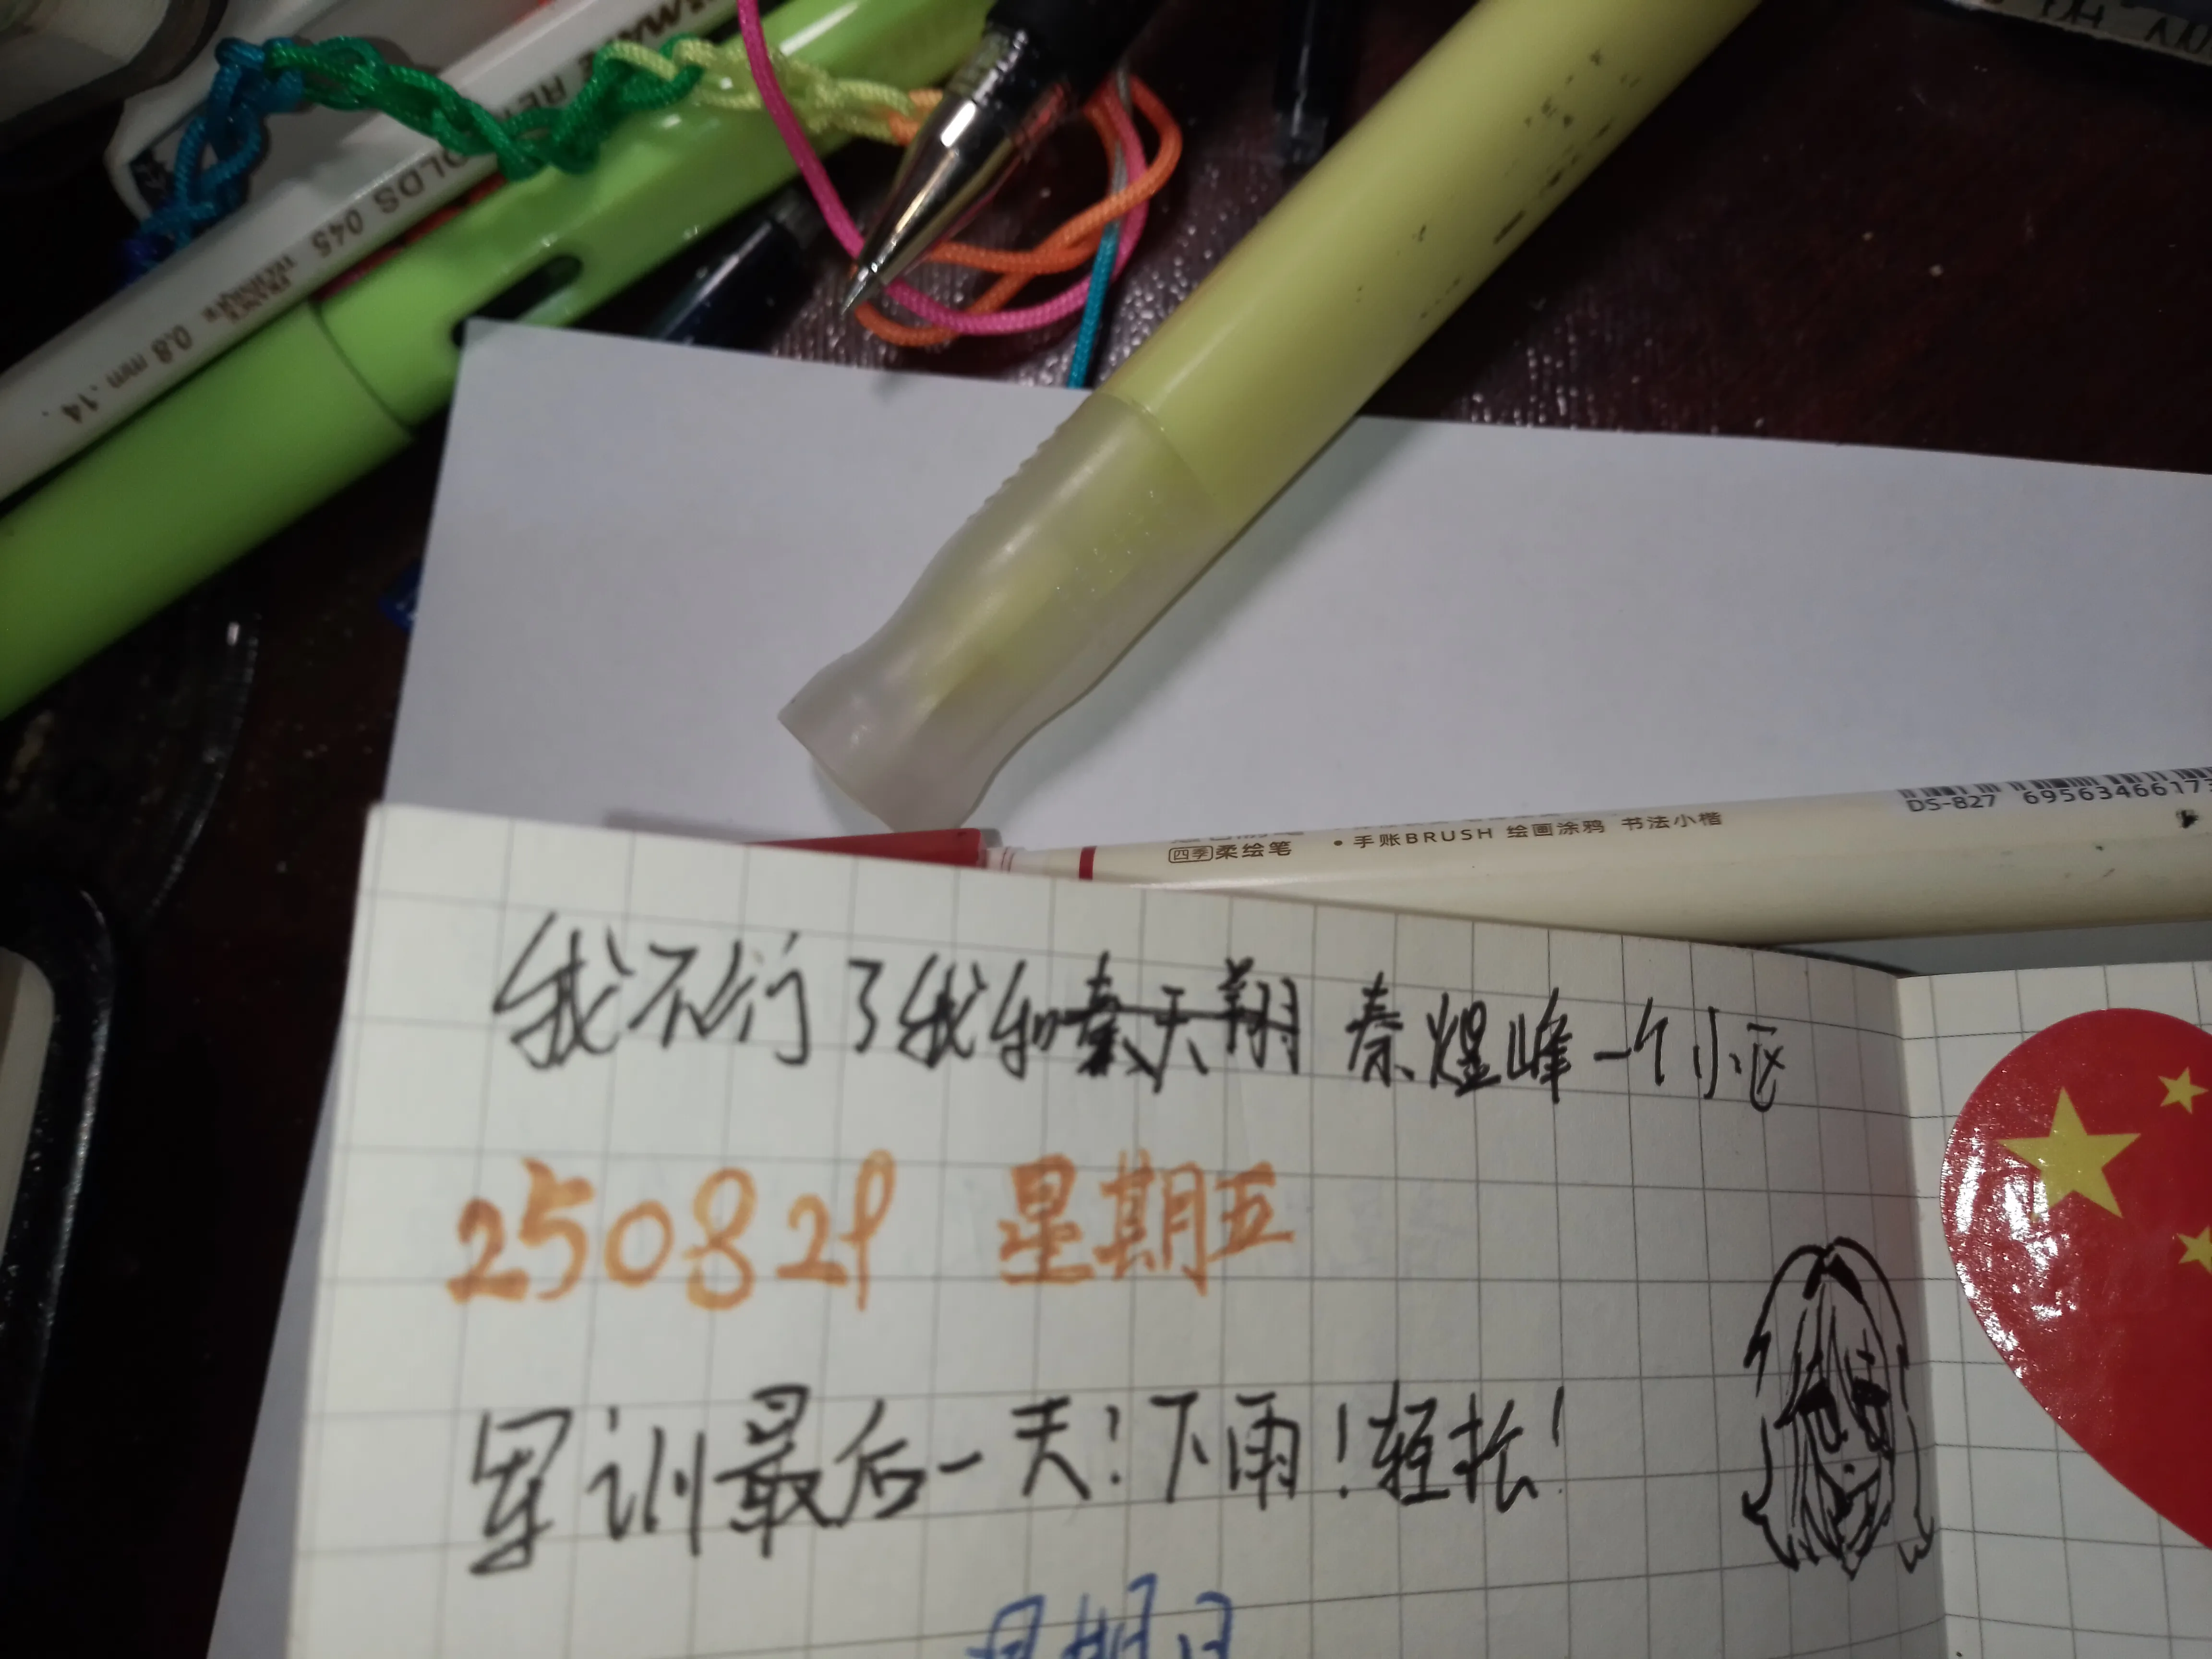 045
0.8 mm .14.
DS-827 695634661
四季柔绘笔 •手账BRUSH 绘画涂鸦 书法小楷
我不行了我和秦天翔 秦煜峰一个小区
250829 星期五
军训最后一天!下雨!轻松!
星期日